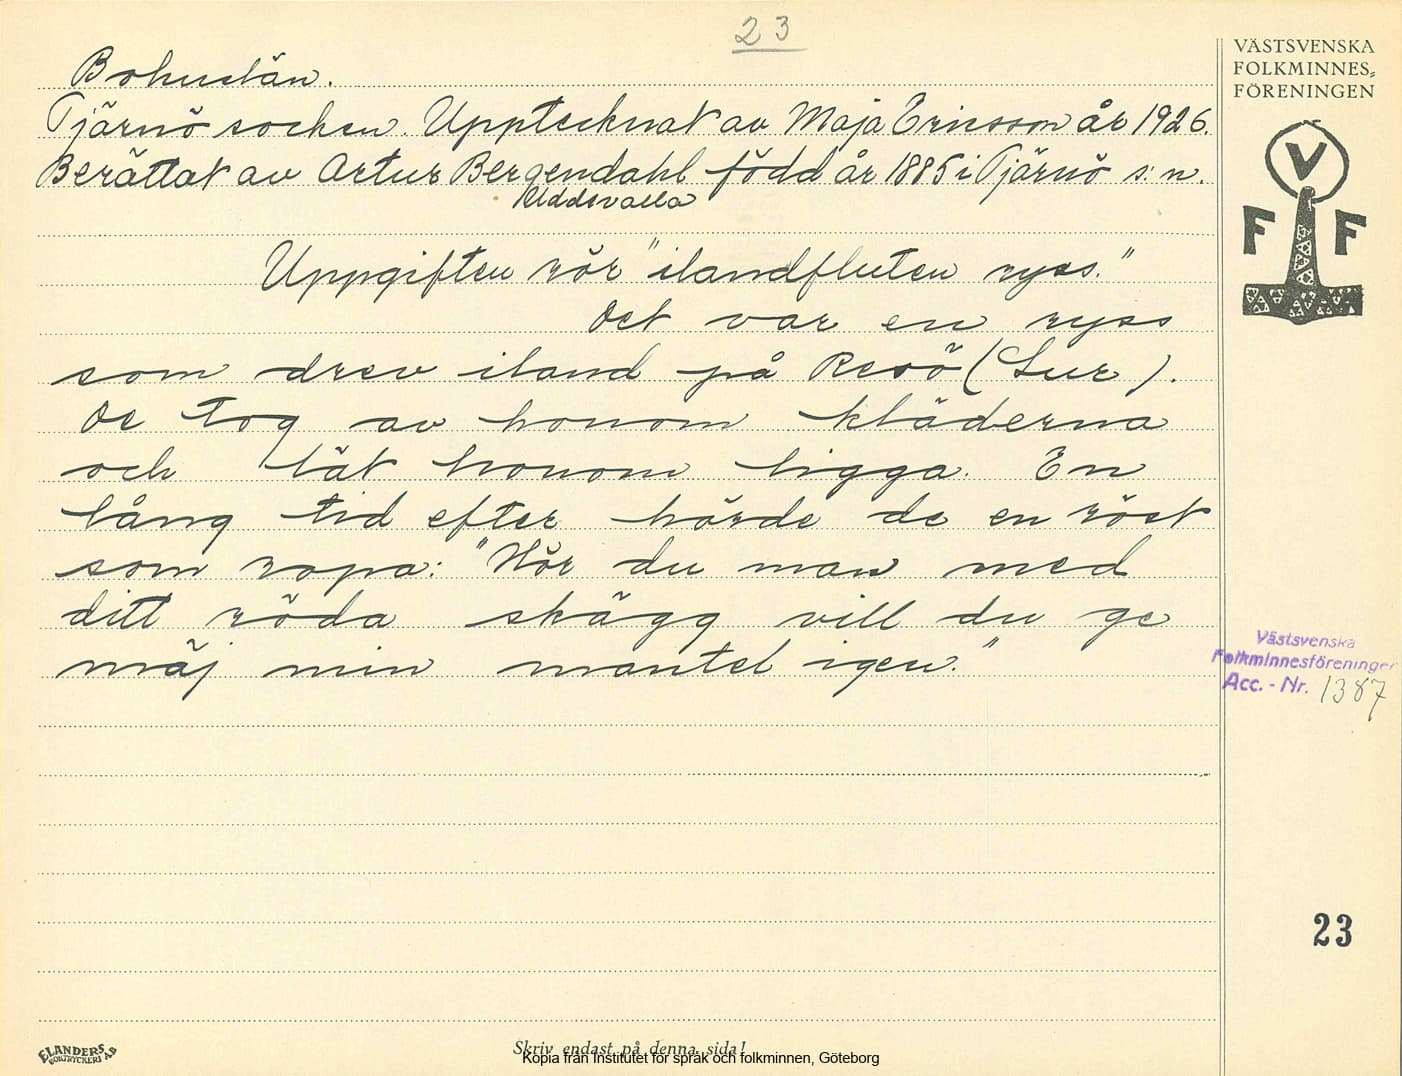 23
Bohuslän.
Tjärnö socken. Upptecknat av Maja Ericsson år 1926.
Berättat av Artur Bergendahl född år 1885 i Tjärnö s:n.
Uddevalla
Uppgiften rör "ilandfluten ryss."
Det var en ryss
som drev iland på Resö (Lur).
De tog av honom kläderna
och lät honom ligga. En
lång tid efter hörde de en röst
som ropa: "Hör du man med
ditt röda skägg vill du ge
mäj min mantel igen."
VÄSTSVENSKA
FOLKMINNES-
FÖRENINGEN
V
F F
Västsvenska
Folkminnesföreningen
Acc. - Nr. 1387
23
ELANDERS
BOKTRYCKERI AB
Skriv endast på denna sida!
Kopia från Institutet för språk och folkminnen, Göteborg